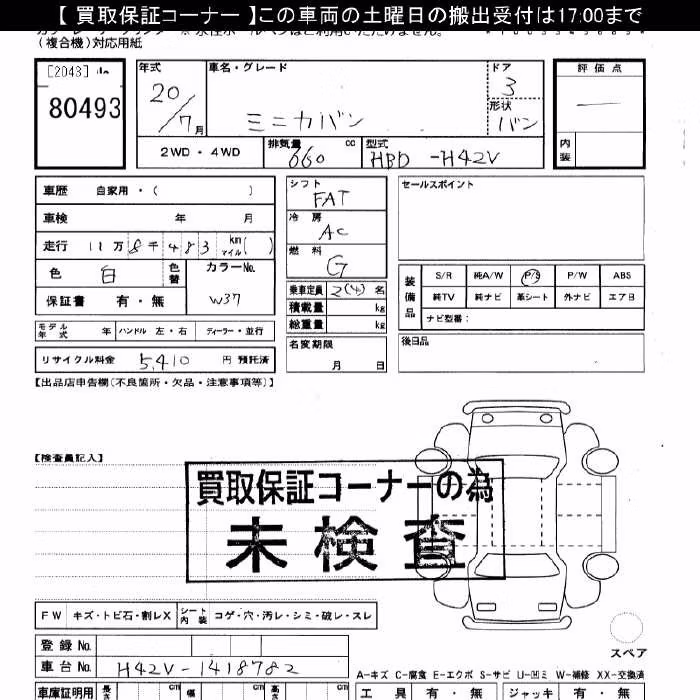 【 買取保証コーナー 】この車両の土曜日の搬出受付は17:00まで
(複合機)対応用紙
[2043]
80493
年式 20/7月
車名・グレード ミニカバン
ドア 3
形状 バン
評価点 —
内装
2WD・4WD
排気量 660 cc
型式 HBD-H42V
車歴 自家用・( )
車検 年 月
走行 11万8千483 km マイル( )
色 白 色替 カラーNo. W37
保証書 有・無
モデル年式 年 ハンドル 左・右 ディーラー・並行
リサイクル料金 5,410 円 預託済
シフト FAT
冷房 AC
燃料 G
乗車定員 2(4) 名
積載量 kg
総重量 kg
名変期限 月 日
セールスポイント
装備品 S/R 純A/W P/S P/W ABS
純TV 純ナビ 革シート 外ナビ エアB
ナビ型番:
後日品
【出品店申告欄(不良箇所・欠品・注意事項等)】
【検査員記入】
買取保証コーナーの為
未検査
FW キズ・トビ石・割レX シート内装 コゲ・穴・汚レ・シミ・破レ・スレ
登録No.
車台No. H42V-1418782
スペア
A-キズ C-腐食 E-エクボ S-サビ U-凹ミ W-補修 XX-交換済
車庫証明用 長さ cm 幅 cm 高さ cm
工具 有・無 ジャッキ 有・無